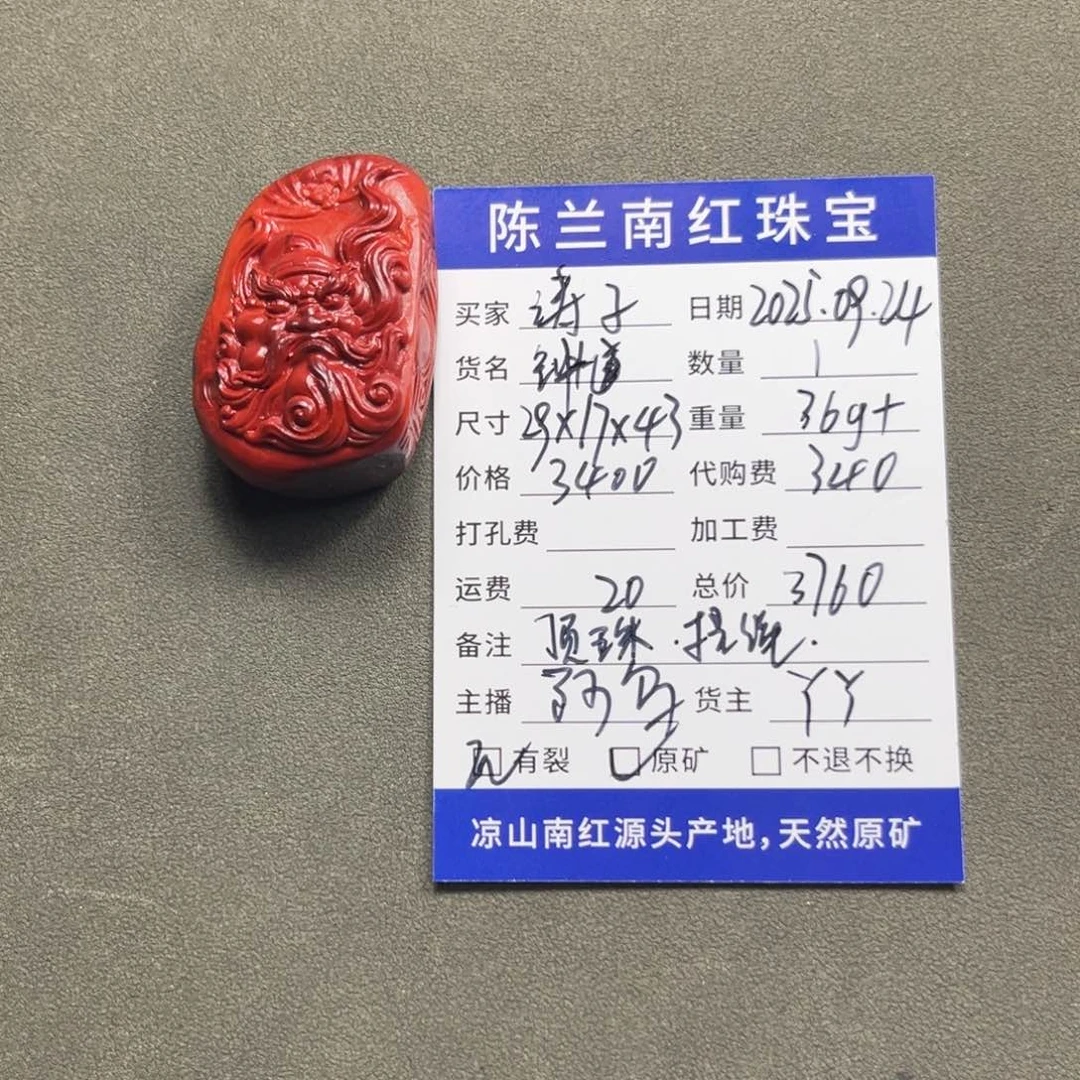 陈兰南红珠宝
买家 涛子 日期 2025.09.24
货名 钟馗 数量 1
尺寸 29×17×43 重量 36g+
价格 3400 代购费 340
打孔费 加工费
运费 20 总价 3760
备注 顶珠.提绳.
主播 阿牛 货主 丫丫
有裂 原矿 不退不换
凉山南红源头产地,天然原矿